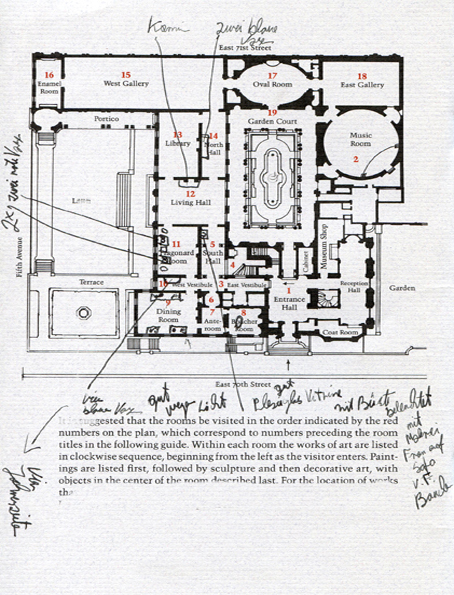 Kamin zwei blaue
Vaz
East 71st Street
16
Enamel
Room
15
West Gallery
17
Oval Room
18
East Gallery
19
Garden Court
Portico
13
Library
14
North
Hall
Music
Room
2
12
Living Hall
Lawn
Fifth Avenue
11
Fragonard
Room
5
South
Hall
4
Cabinet
Museum Shop
Reception
Hall
Garden
Terrace
10
West Vestibule
3
East Vestibule
1
Entrance
Hall
9
Dining
Room
6
7
Ante-
room
8
Boucher
Room
Coat Room
East 70th Street
vier
blaue Vaz
gut
Licht
gut
Plexiglas Vitrine
mit Büste
beleuchtet
mit
Frau auf
Sofa
v. F.
It is suggested that the rooms be visited in the order indicated by the red
numbers on the plan, which correspond to numbers preceding the room
titles in the following guide. Within each room the works of art are listed
in clockwise sequence, beginning from the left as the visitor enters. Paint-
ings are listed first, followed by sculpture and then decorative art, with
objects in the center of the room described last. For the location of works
tha